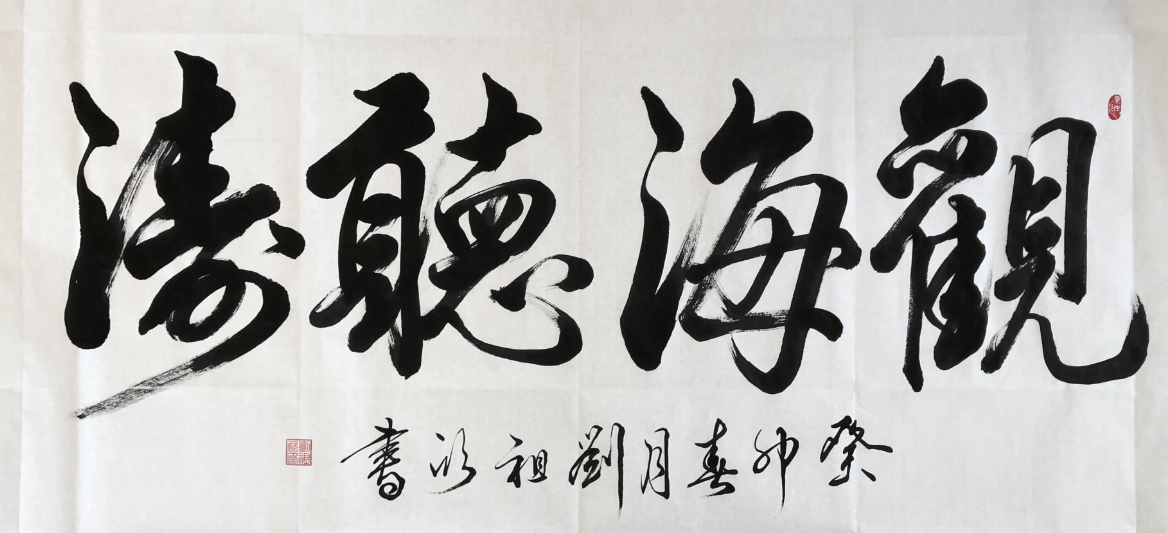 觀海聽濤
癸卯春月劉祖欣書